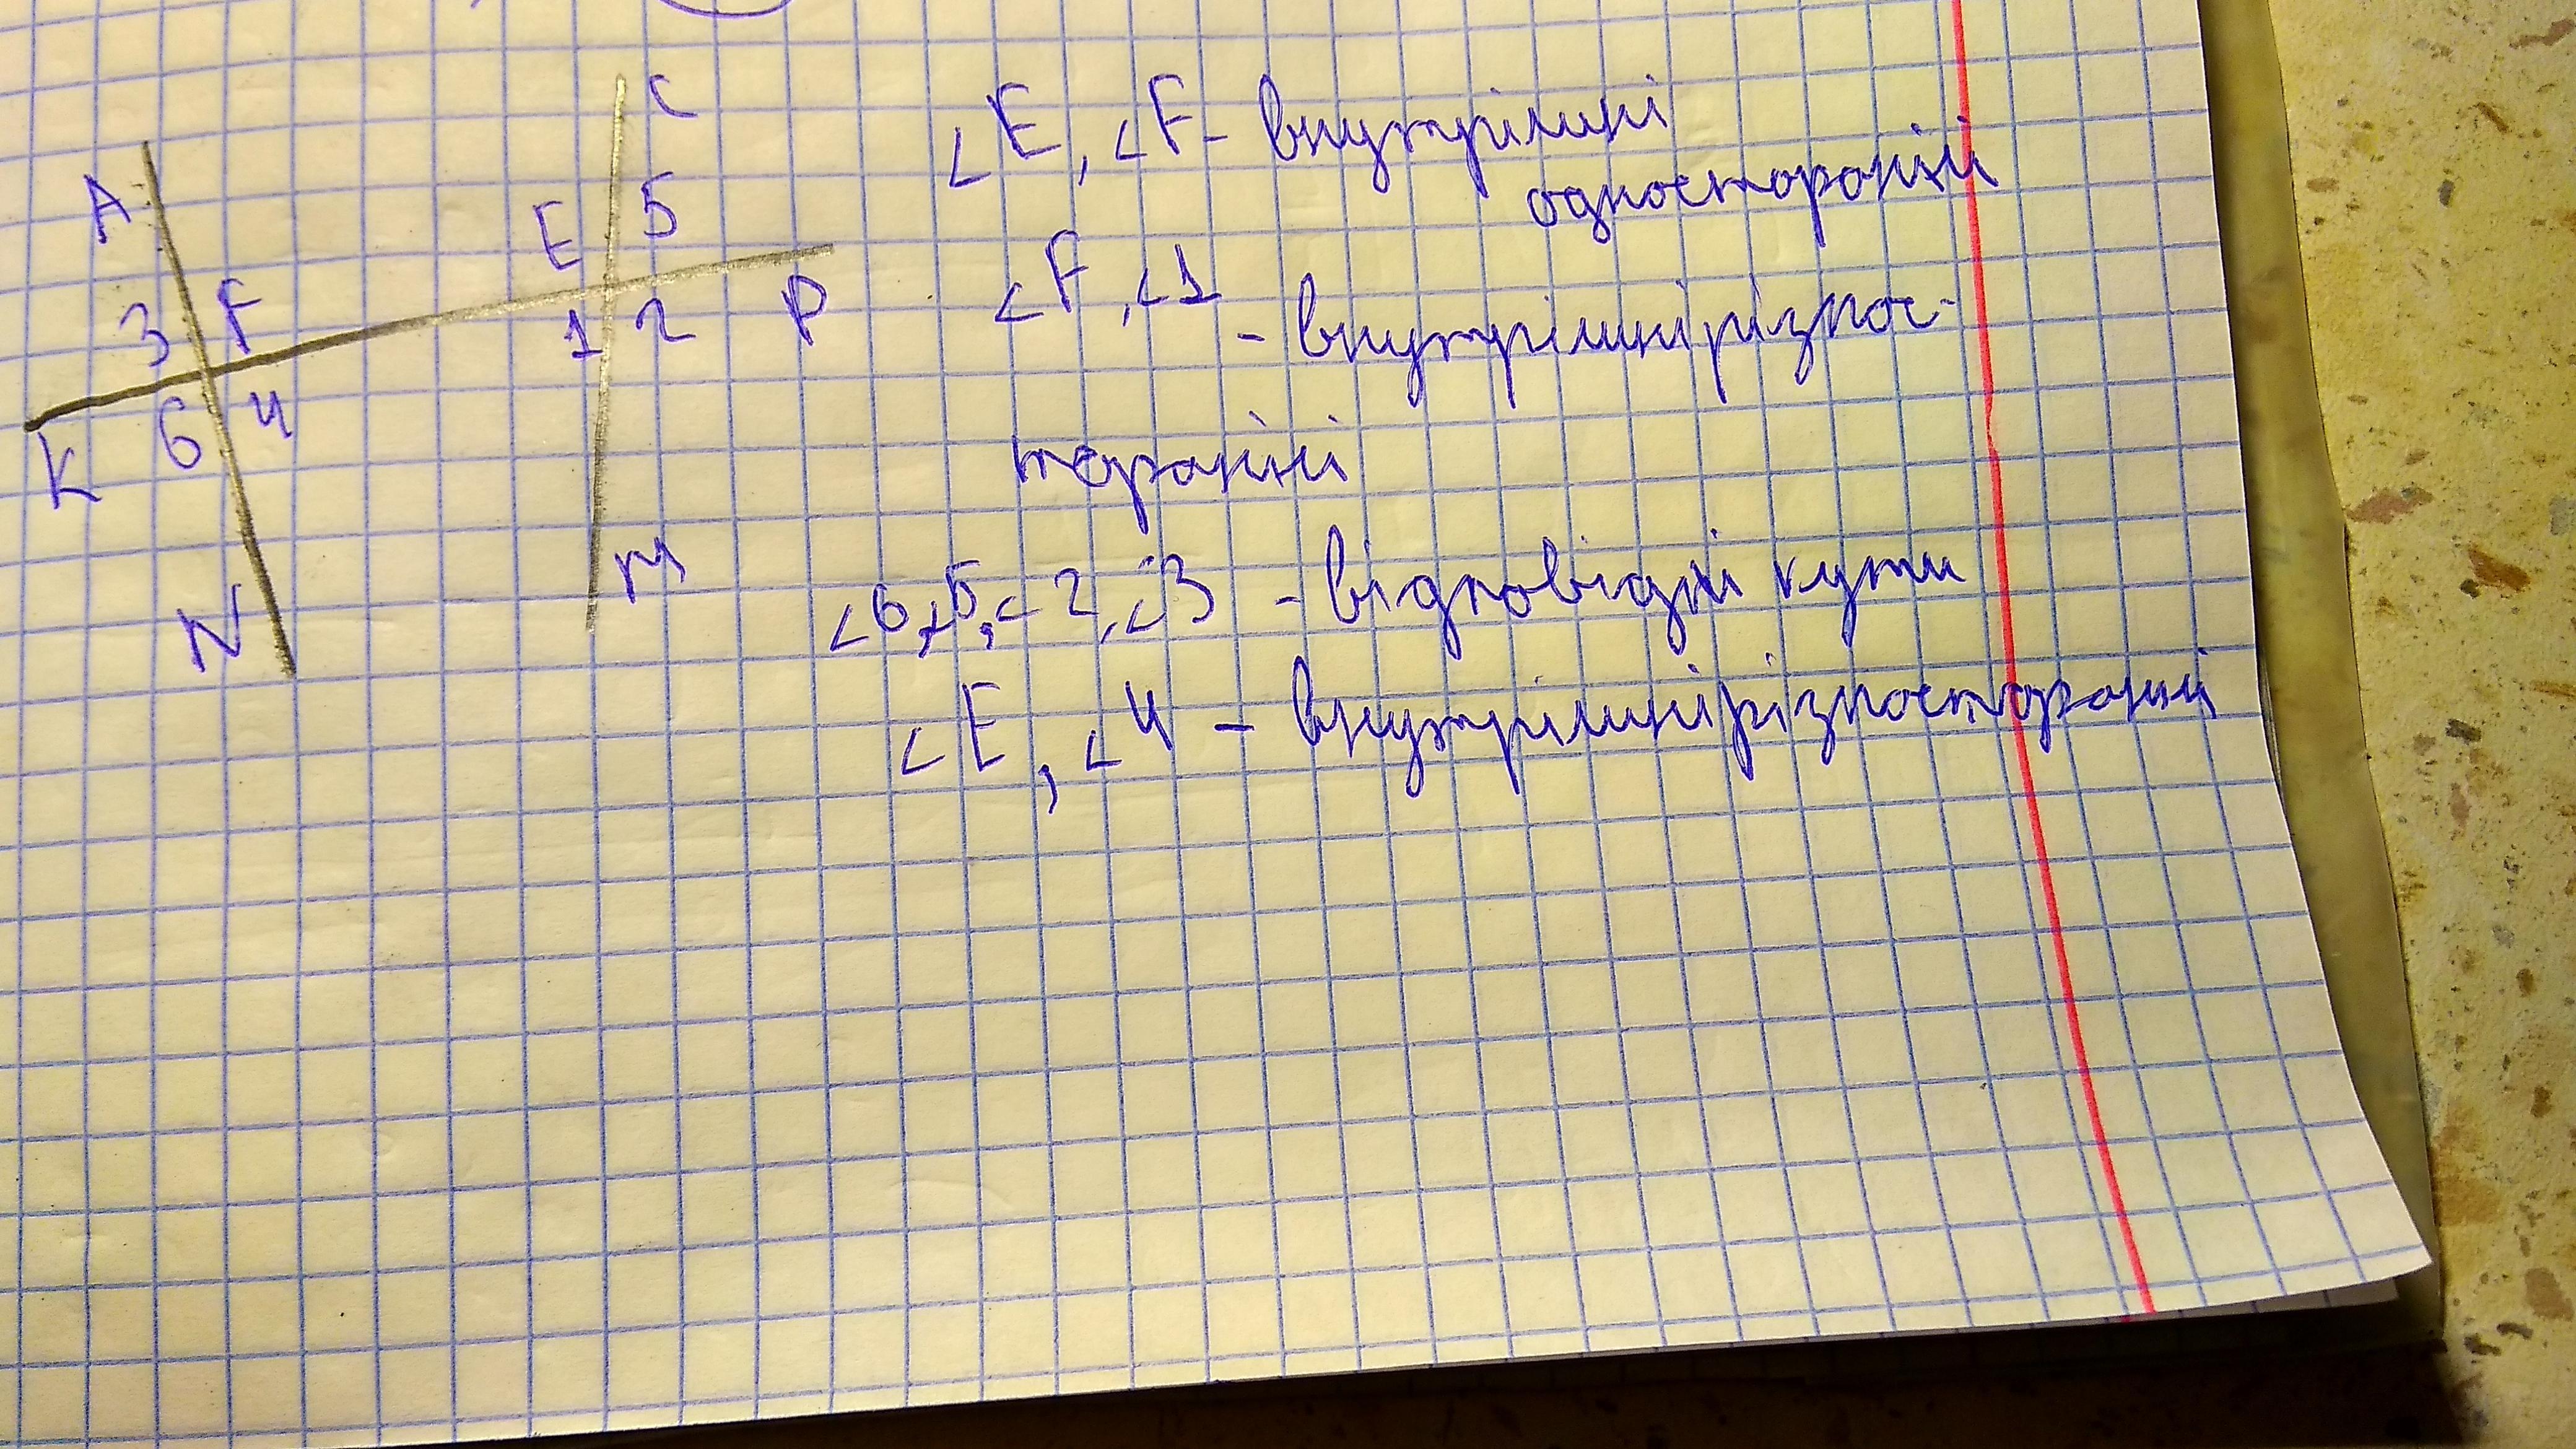 A
C
E 5
3 F
1 2 P
6 4
K
M
N
∠E, ∠F - внутрішні
односторонні
∠F, ∠1
- внутрішні різнос-
торонні
∠6, ∠5, ∠2, ∠3 - відповідні кути
∠E, ∠4 - внутрішні різносторонні